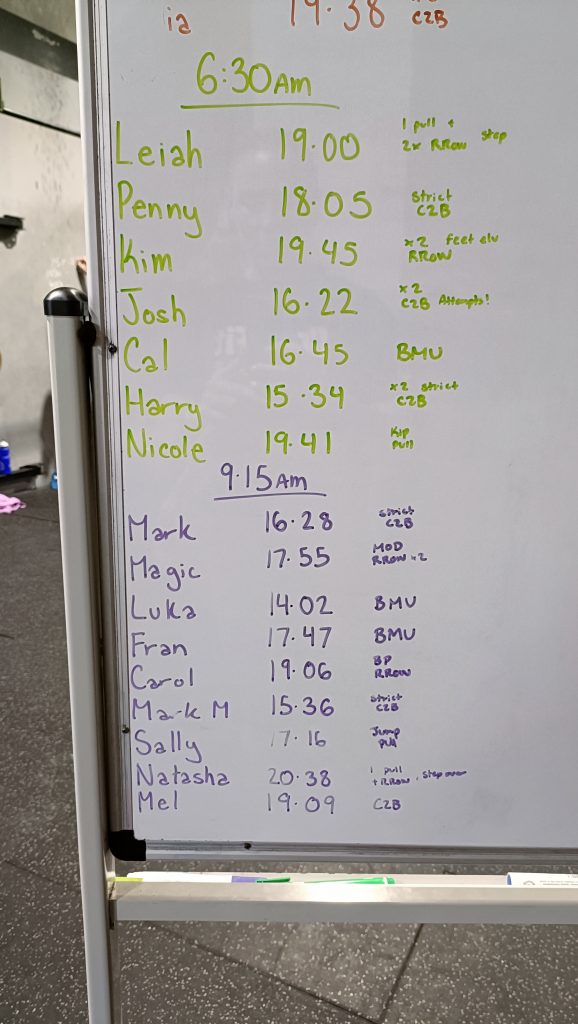 ia 19.38 C2B
6:30AM
Leiah 19.00 1 pull + 2x RRow step
Penny 18.05 strict C2B
Kim 19.45 x2 feet elv RROW
Josh 16.22 x2 C2B Attempts!
Cal 16.45 BMU
Harry 15.34 x2 strict C2B
Nicole 19.41 Kip Pull
9.15AM
Mark 16.28 strict C2B
Magic 17.55 MOD RROW x2
Luka 14.02 BMU
Fran 17.47 BMU
Carol 19.06 BP RROW
Mark M 15.36 strict C2B
Sally 17.16 Jump Pull
Natasha 20.38 1 pull + RROW, step over
Mel 19.09 C2B